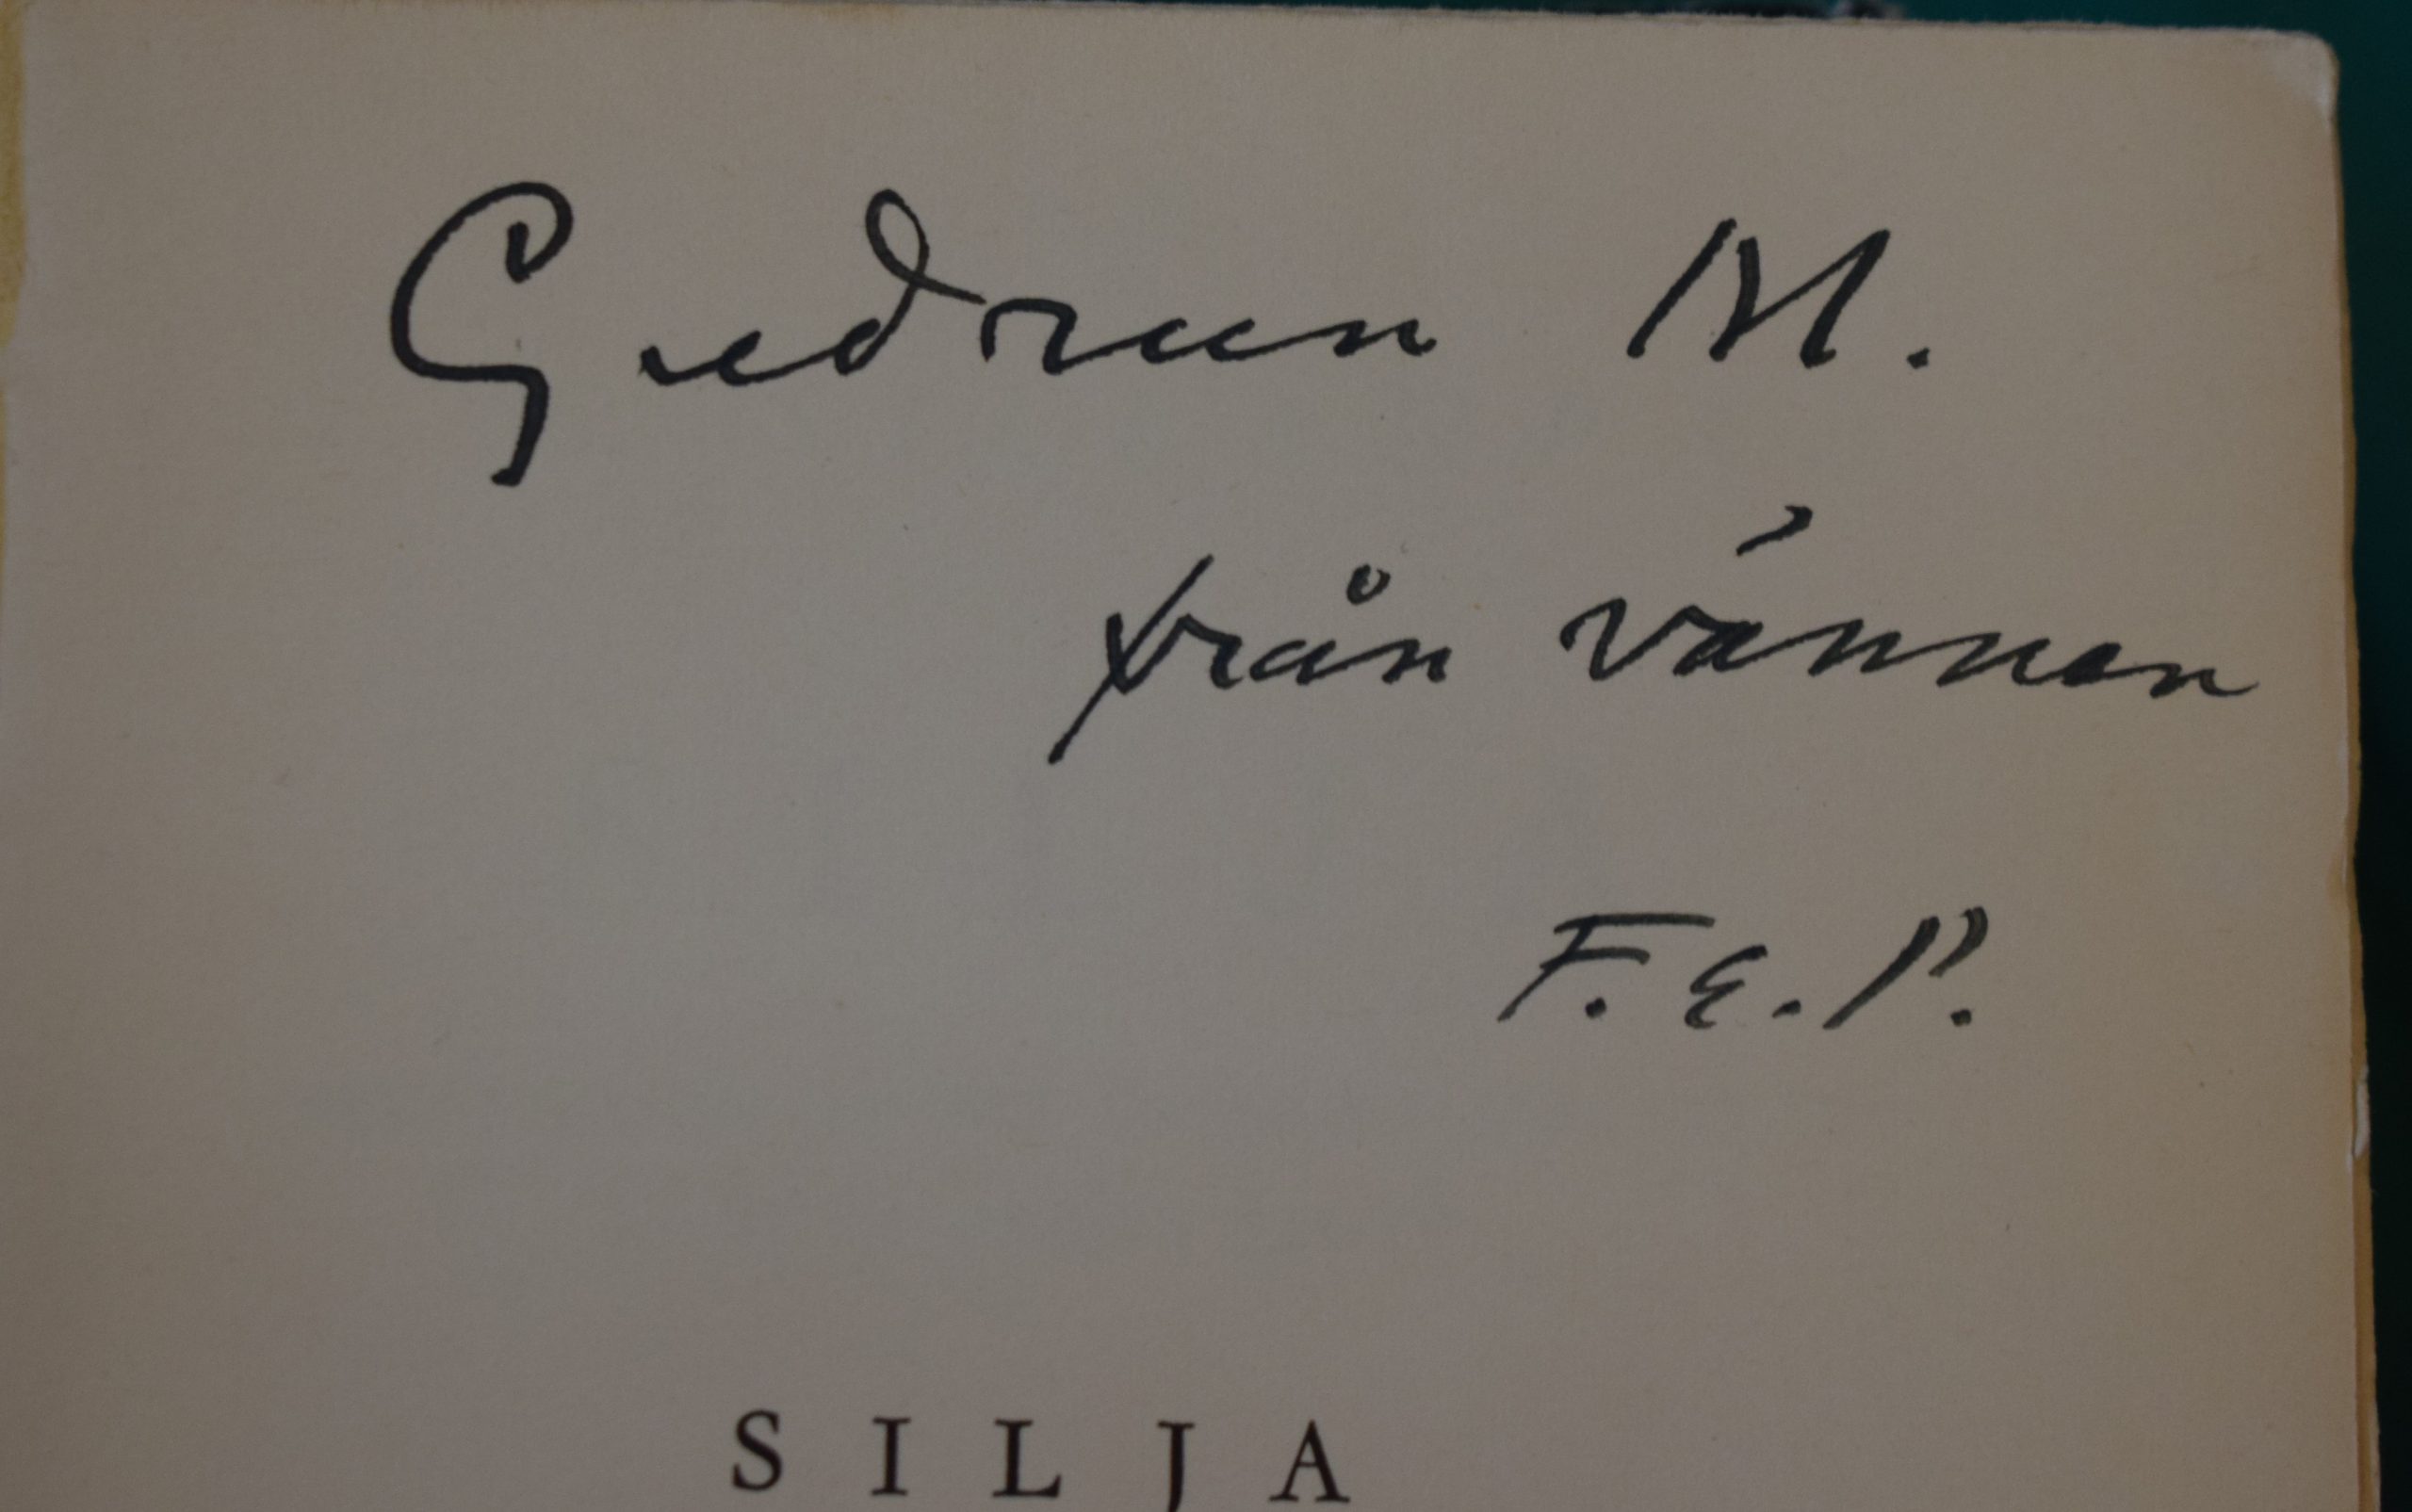 Gudrun M.
från vännen
F. E. P.
SILJA